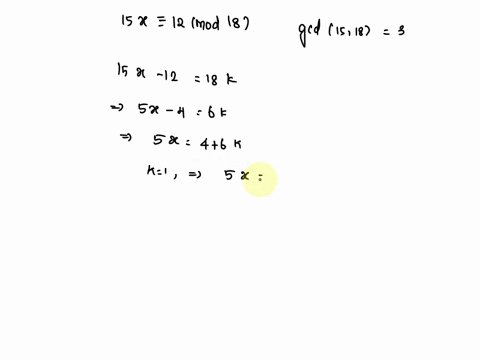 15x ≡ 12 (mod 18)
gcd (15, 18) = 3
15x - 12 = 18k
⇒ 5x - 4 = 6k
⇒ 5x = 4+6k
k=1, ⇒ 5x =